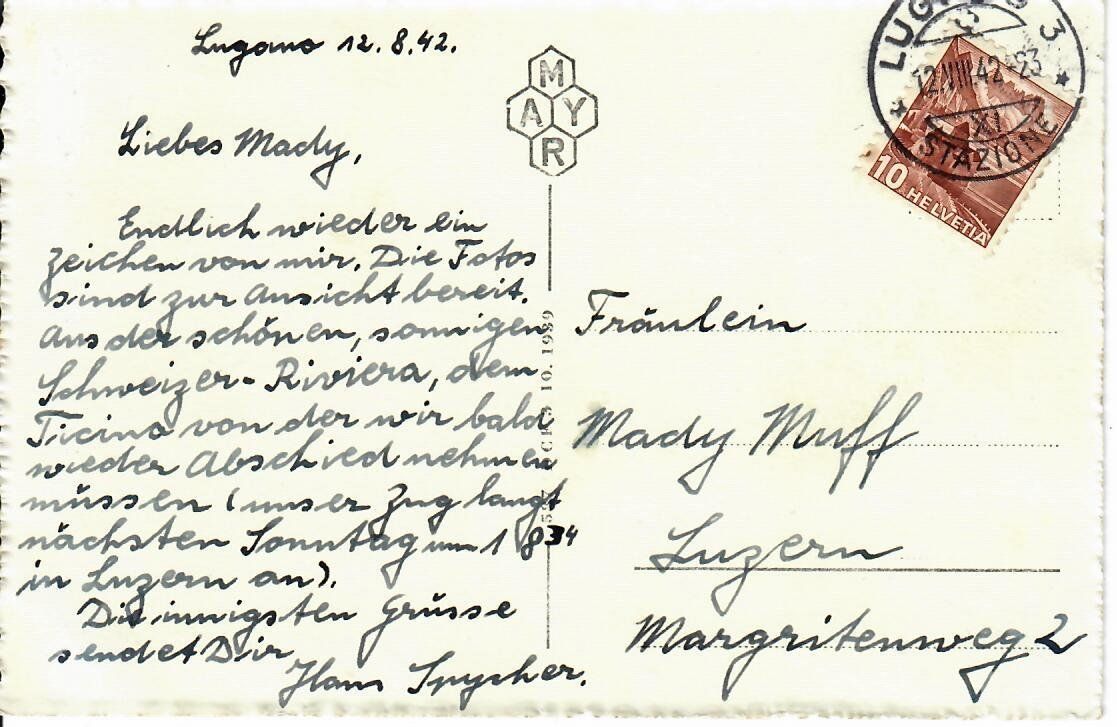 Lugano 12.8.42.
Liebes Mady,
Endlich wieder ein
zeichen von mir. Die Fotos
sind zur Ansicht bereit.
Aus der schönen, sonnigen
Schweizer-Riviera, dem
Ticino von der wir bald
wieder Abschied nehmen
müssen (unser Zug langt
nächsten Sonntag um 1834
in Luzern an).
Die innigsten Grüsse
sendet Dir
Hans Spycher.
MAYR
10. 1939
LUGANO 3
12.VIII.42-23
XI
STAZIONE
10 HELVETIA
Fräulein
Mady Muff
Luzern
Margritenweg 2